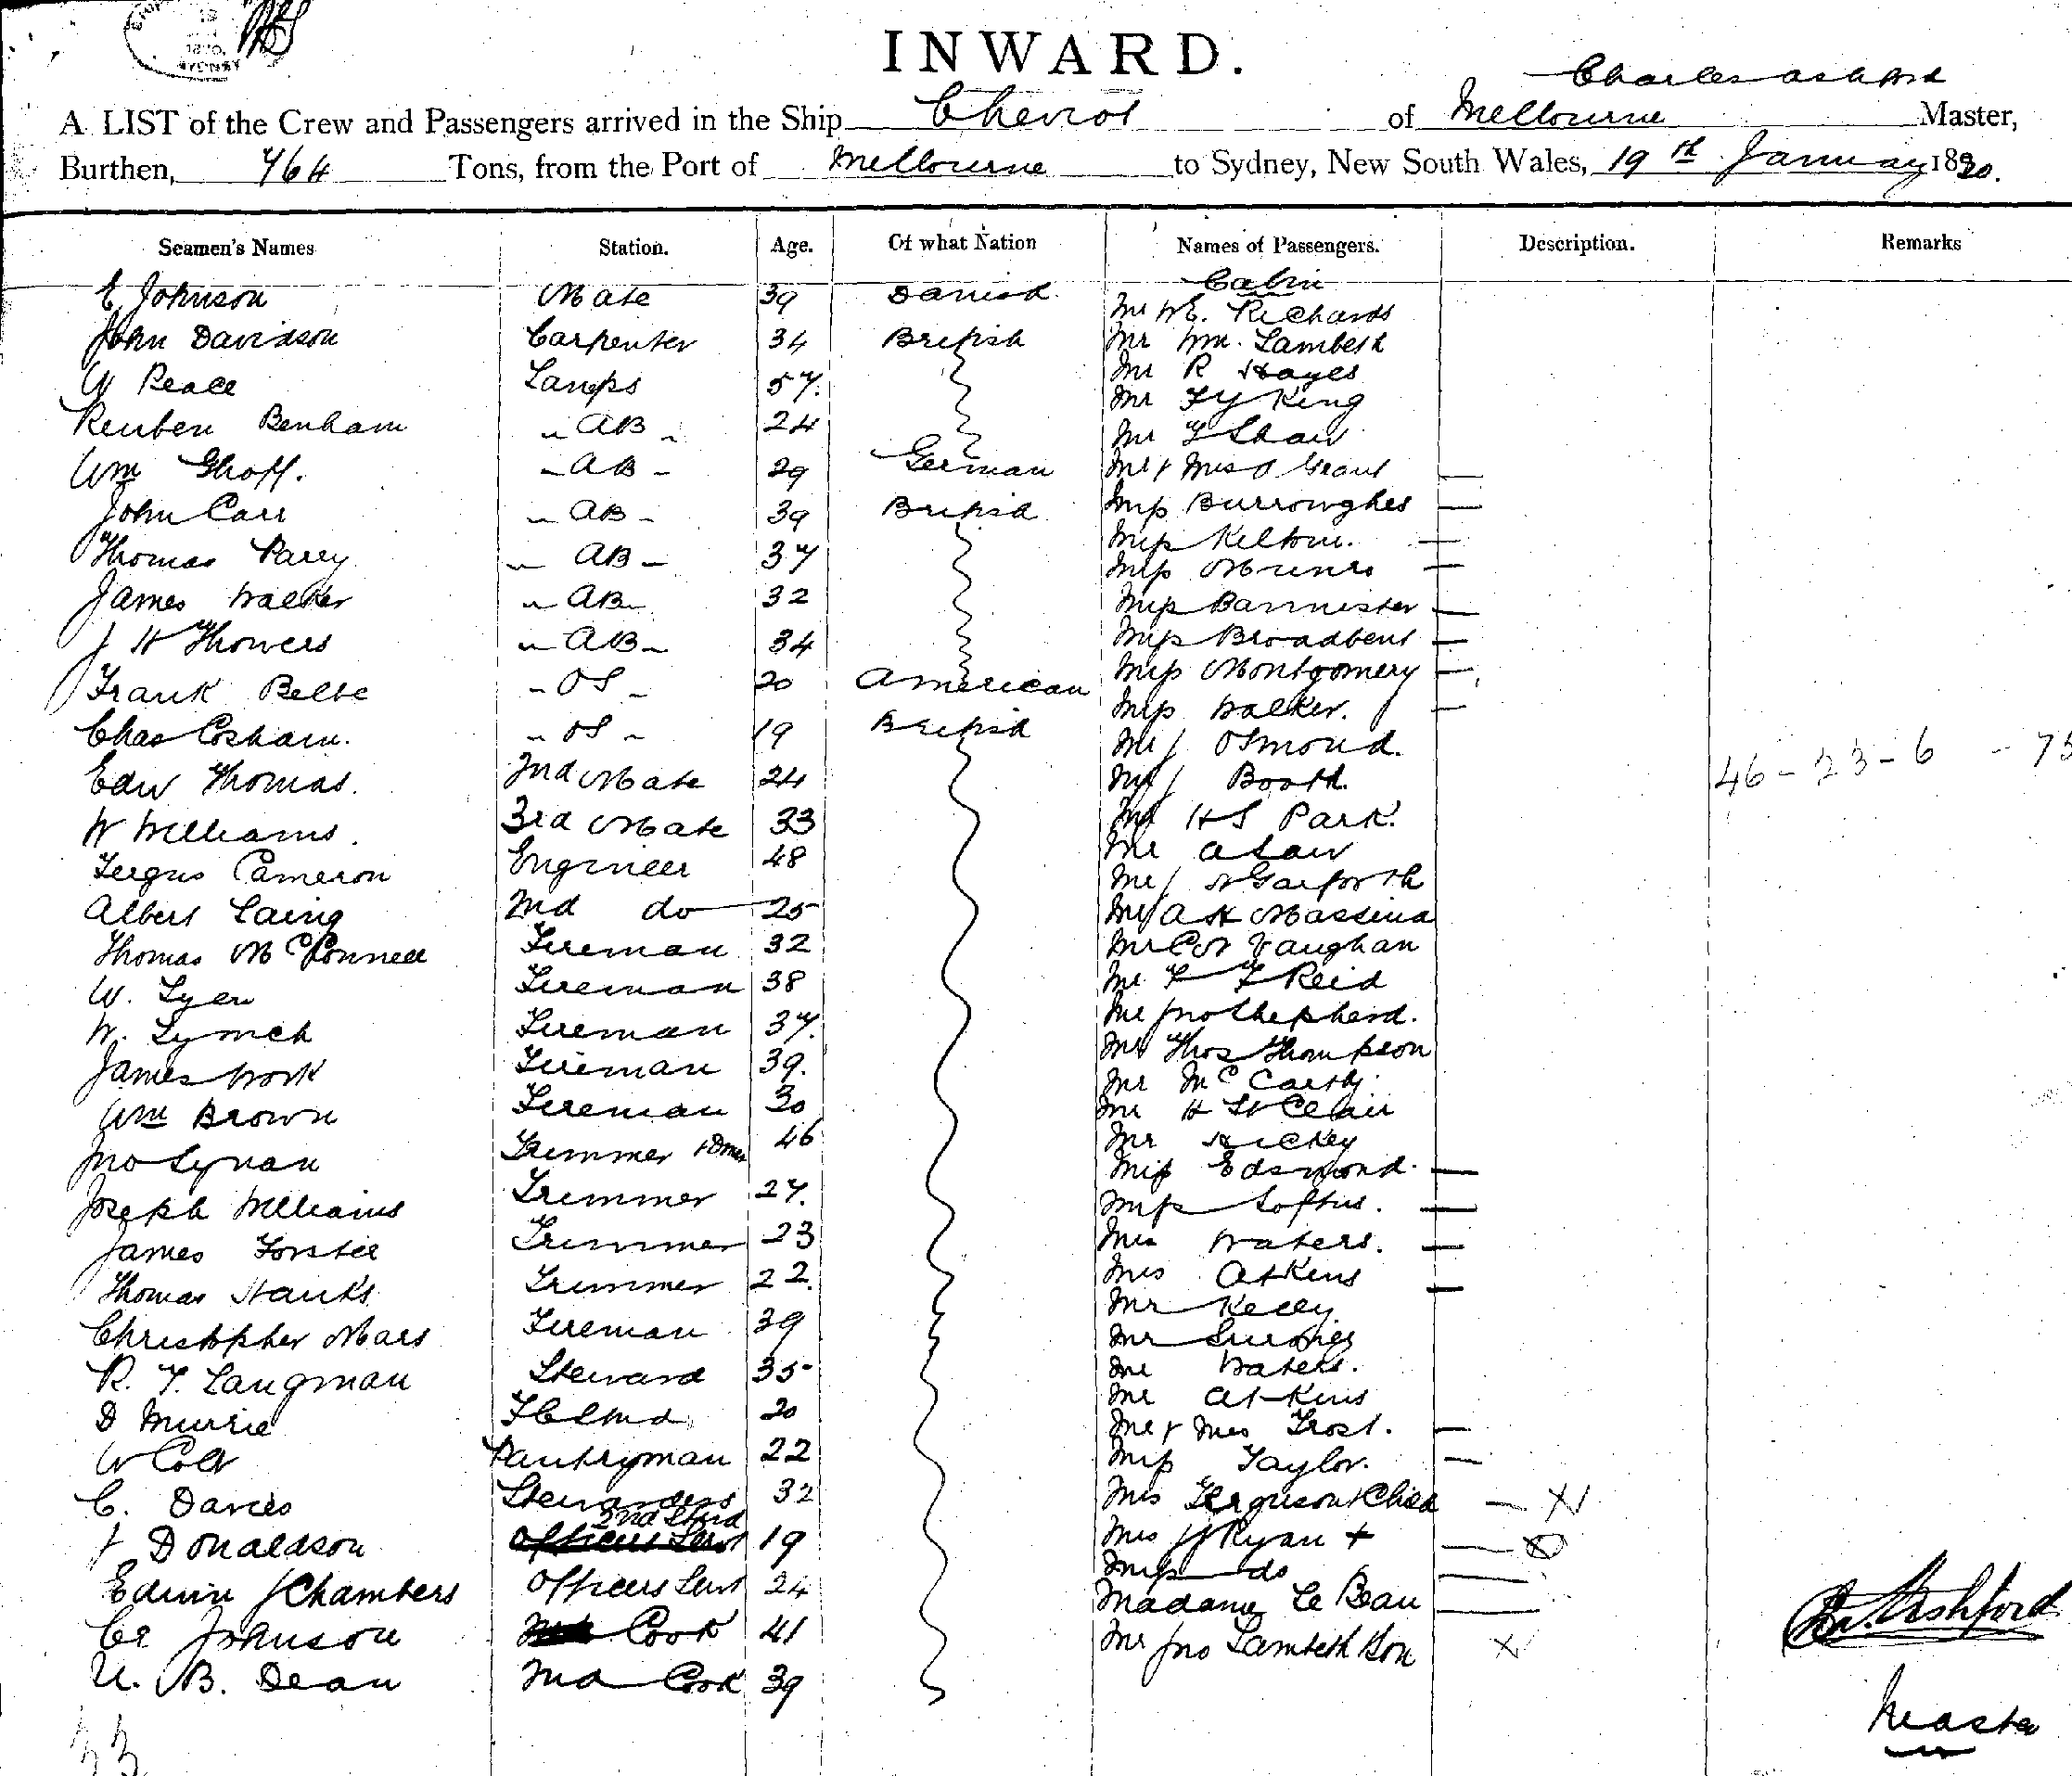 INWARD.
Charles Ashford
A LIST of the Crew and Passengers arrived in the Ship Cheviot of Melbourne Master,
Burthen, 764 Tons, from the Port of Melbourne to Sydney, New South Wales, 19th January 1890.
Seamen's Names Station. Age. Of what Nation Names of Passengers. Description. Remarks
Cabin
E Johnson Mate 39 Danish Mr W E. Richards
John Davidson Carpenter 34 British Mr Wm. Lambeth
W Peace Lamps 57. Mr R Hayes
Mr F J King
Reuben Benham " AB " 24 Mr F Shaw
Wm Ghoff. - AB - 29 German Mr & Mrs O Grant
John Carr " AB - 39 British Miss Burroughes
Thomas Parry " AB - 37 Miss Kilton.
Miss Munro
James Walker " AB - 32 Miss Bannister
J H Thowers " AB - 34 Miss Broadbent
Frank Belbe - OS - 20 American Miss Montgomery
Miss Walker.
Chas Cosham. " OS " 19 British Mr J Osmond.
Edw Thomas. 2nd Mate 24 Mr J Booth. 46 - 23 - 6 - 75
W Williams. 3rd Mate 33 Mr H S Park.
Fergus Cameron Engineer 48 Mr A Law
Mr J W Garforth
Albert Laing 2nd do 25 Mr A H Massina
Thomas McConnell Fireman 32 Mr C W Vaughan
W. Lyen Fireman 38 Mr F F Reid
W. Lynch Fireman 37. Mr Jno Shepherd.
Mr Thos Thompson
James Work Fireman 39. Mr McCarthy.
Wm Brown Fireman 30 Mr H St Clair
Jno Lynan Trimmer & Dman 46 Mr Hickey
Miss Edsmond.
Joseph Williams Trimmer 27. Miss Loftus.
James Forster Trimmer 23 Mrs Waters.
Thomas Hanks Trimmer 22. Mrs Atkins
Mr Kelly
Christopher Mars Fireman 39 Mr
R. T. Langman Steward 35 Mr Waters.
Mr Atkins
D Murrie F C Stwd 20 Mr & Mrs Frost.
W Colt Pantryman 22 Miss Taylor.
C. Davies Stewardess 32 Mrs Ferguson & Child X
2nd Stwd
J Donaldson Officers Servt 19 Mrs J Ryan +
Miss do
Edwin J Chambers Officers Servt 24 Madame Le Beau
Ce Johnson Cook 41 Mr Jno Lambeth Son X
U. B. Dean 2nd Cook 39
Ashford
Master
33